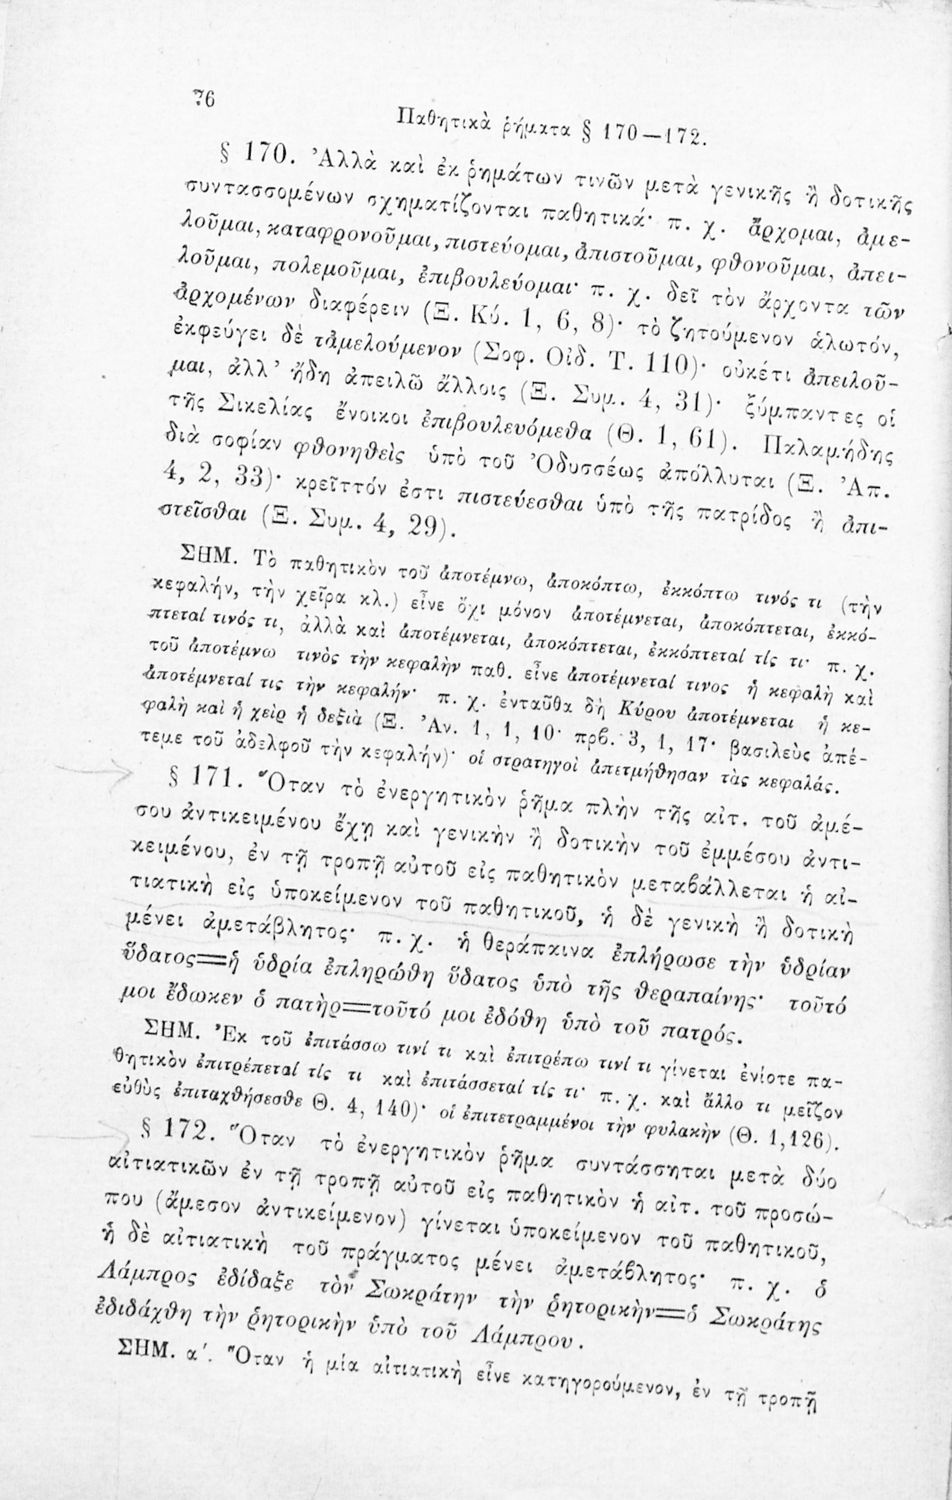 76
Παθητικὰ ῥήματα § 170—172.
§ 170. Ἀλλὰ καὶ ἐκ ῥημάτων τινῶν μετὰ γενικῆς ἢ δοτικῆς
συντασσομένων σχηματίζονται παθητικά· π. χ. ἄρχομαι, ἀμε-
λοῦμαι, καταφρονοῦμαι, πιστεύομαι, ἀπιστοῦμαι, φθονοῦμαι, ἀπει-
λοῦμαι, πολεμοῦμαι, ἐπιβουλεύομαι· π. χ. δεῖ τὸν ἄρχοντα τῶν
ἀρχομένων διαφέρειν (Ξ. Κύ. 1, 6, 8)· τὸ ζητούμενον ἁλωτόν,
ἐκφεύγει δὲ τἀμελούμενον (Σοφ. Οἰδ. Τ. 110)· οὐκέτι ἀπειλοῦ-
μαι, ἀλλ’ ἤδη ἀπειλῶ ἄλλοις (Ξ. Συμ. 4, 31)· ξύμπαντες οἱ
τῆς Σικελίας ἔνοικοι ἐπιβουλευόμεθα (Θ. 1, 61). Παλαμήδης
διὰ σοφίαν φθονηθεὶς ὑπὸ τοῦ Ὀδυσσέως ἀπόλλυται (Ξ. Ἀπ.
4, 2, 33)· κρεῖττόν ἐστι πιστεύεσθαι ὑπὸ τῆς πατρίδος ἢ ἀπι-
στεῖσθαι (Ξ. Συμ. 4, 29).
ΣΗΜ. Τὸ παθητικὸν τοῦ ἀποτέμνω, ἀποκόπτω, ἐκκόπτω τινός τι (τὴν
κεφαλήν, τὴν χεῖρα κλ.) εἶνε ὄχι μόνον ἀποτέμνεται, ἀποκόπτεται, ἐκκό-
πτεταί τινός τι, ἀλλὰ καὶ ἀποτέμνεται, ἀποκόπτεται, ἐκκόπτεταί τίς τι· π. χ.
τοῦ ἀποτέμνω τινὸς τὴν κεφαλὴν παθ. εἶνε ἀποτέμνεταί τινος ἡ κεφαλὴ καὶ
ἀποτέμνεταί τις τὴν κεφαλήν· π. χ. ἐνταῦθα δὴ Κύρου ἀποτέμνεται ἡ κε-
φαλὴ καὶ ἡ χεὶρ ἡ δεξιὰ (Ξ. Ἀν. 1, 1, 10· πρβ. 3, 1, 17· βασιλεὺς ἀπέ-
τεμε τοῦ ἀδελφοῦ τὴν κεφαλήν)· οἱ στρατηγοὶ ἀπετμήθησαν τὰς κεφαλάς.
§ 171. Ὅταν τὸ ἐνεργητικὸν ῥῆμα πλὴν τῆς αἰτ. τοῦ ἀμέ-
σου ἀντικειμένου ἔχῃ καὶ γενικὴν ἢ δοτικὴν τοῦ ἐμμέσου ἀντι-
κειμένου, ἐν τῇ τροπῇ αὐτοῦ εἰς παθητικὸν μεταβάλλεται ἡ αἰ-
τιατικὴ εἰς ὑποκείμενον τοῦ παθητικοῦ, ἡ δὲ γενικὴ ἢ δοτικὴ
μένει ἀμετάβλητος· π. χ. ἡ θεράπαινα ἐπλήρωσε τὴν ὑδρίαν
ὕδατος=ἡ ὑδρία ἐπληρώθη ὕδατος ὑπὸ τῆς θεραπαίνης· τοῦτό
μοι ἔδωκεν ὁ πατὴρ=τοῦτό μοι ἐδόθη ὑπὸ τοῦ πατρός.
ΣΗΜ. Ἐκ τοῦ ἐπιτάσσω τινί τι καὶ ἐπιτρέπω τινί τι γίνεται ἐνίοτε πα-
θητικὸν ἐπιτρέπεταί τίς τι καὶ ἐπιτάσσεταί τίς τι· π. χ. καὶ ἄλλο τι μεῖζον
εὐθὺς ἐπιταχθήσεσθε Θ. 4, 140)· οἱ ἐπιτετραμμένοι τὴν φυλακὴν (Θ. 1,126).
§ 172. Ὅταν τὸ ἐνεργητικὸν ῥῆμα συντάσσηται μετὰ δύο
αἰτιατικῶν ἐν τῇ τροπῇ αὐτοῦ εἰς παθητικὸν ἡ αἰτ. τοῦ προσώ-
που (ἄμεσον ἀντικείμενον) γίνεται ὑποκείμενον τοῦ παθητικοῦ,
ἡ δὲ αἰτιατικὴ τοῦ πράγματος μένει ἀμετάβλητος· π. χ. ὁ
Λάμπρος ἐδίδαξε τὸν Σωκράτην τὴν ῥητορικὴν=ὁ Σωκράτης
ἐδιδάχθη τὴν ῥητορικὴν ὑπὸ τοῦ Λάμπρου.
ΣΗΜ. α΄. Ὅταν ἡ μία αἰτιατικὴ εἶνε κατηγορούμενον, ἐν τῇ τροπῇ